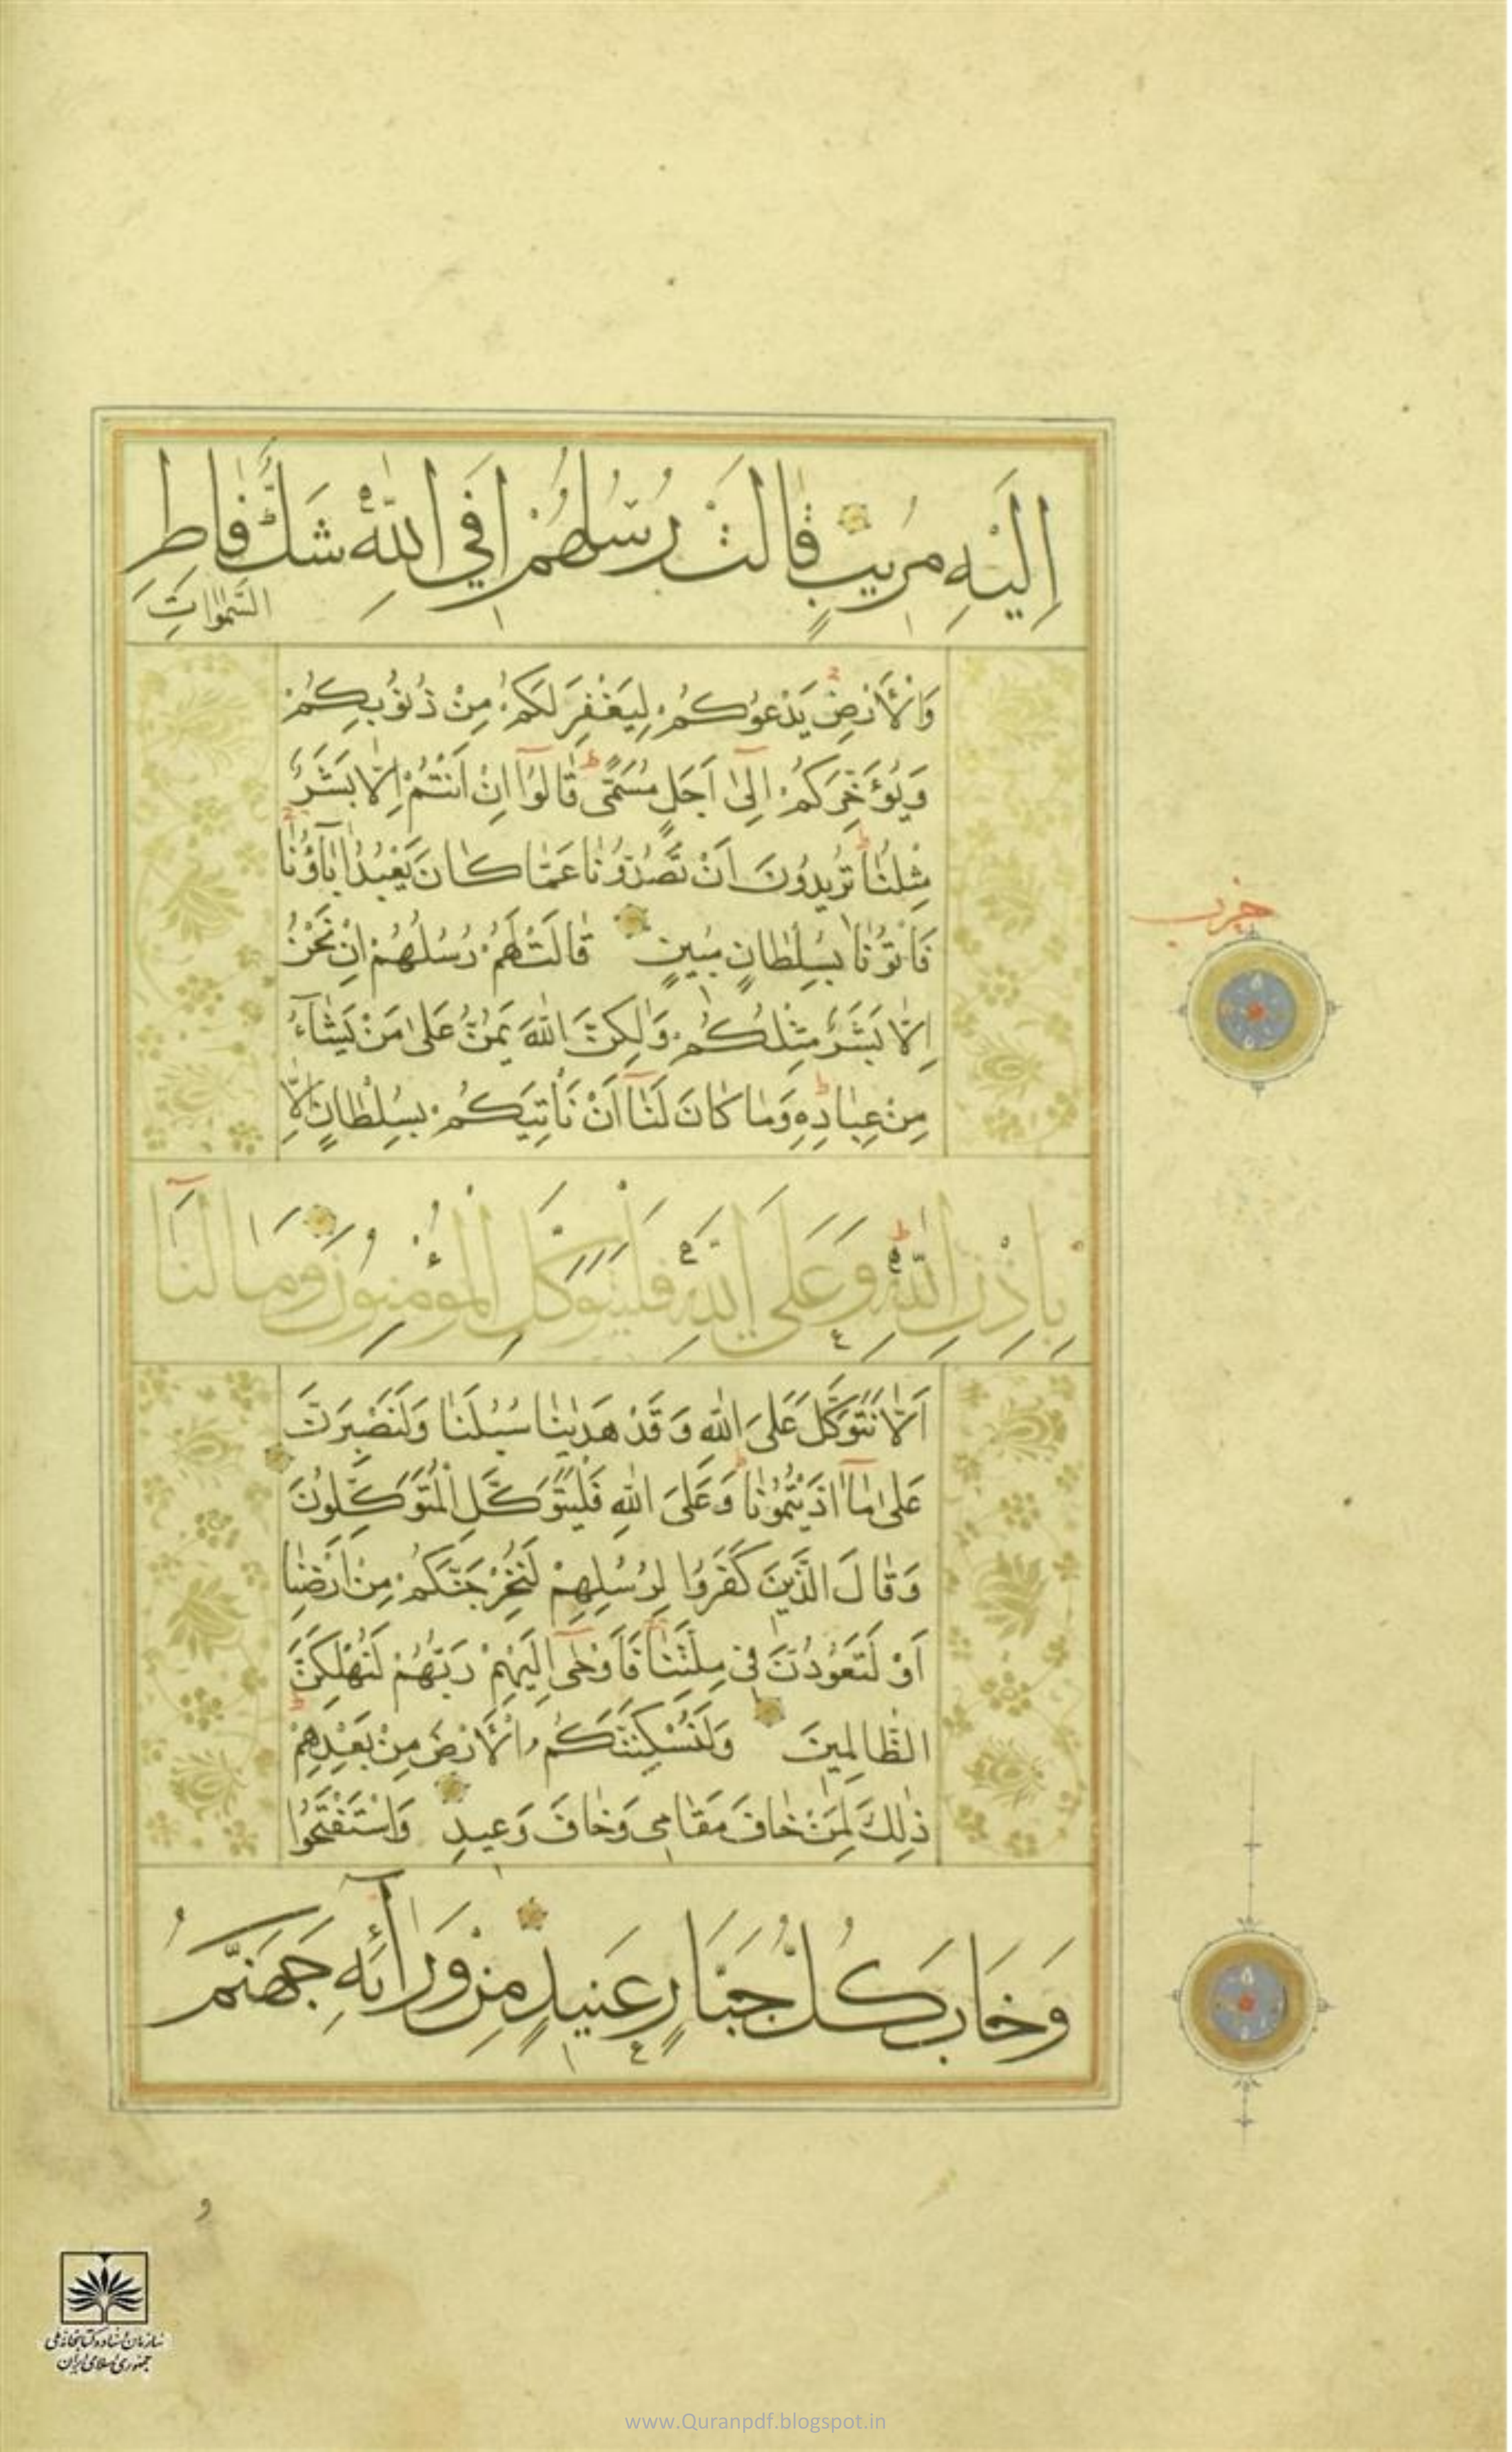 اِلَيْهِ مُرِيبٍ قَالَتْ رُسُلُهُمْ اَفِي اللّٰهِ شَكٌّ فَاطِرِ
السَّمٰوَاتِ
وَالْاَرْضِ يَدْعُوكُمْ لِيَغْفِرَ لَكُمْ مِنْ ذُنُوبِكُمْ
وَيُؤَخِّرَكُمْ اِلٰٓى اَجَلٍ مُسَمًّى قَالُوٓا اِنْ اَنْتُمْ اِلَّا بَشَرٌ
مِثْلُنَا تُرِيدُونَ اَنْ تَصُدُّونَا عَمَّا كَانَ يَعْبُدُ اٰبَآؤُنَا
فَأْتُونَا بِسُلْطَانٍ مُبِينٍ قَالَتْ لَهُمْ رُسُلُهُمْ اِنْ نَحْنُ
اِلَّا بَشَرٌ مِثْلُكُمْ وَلٰكِنَّ اللّٰهَ يَمُنُّ عَلٰى مَنْ يَشَآءُ
مِنْ عِبَادِهِ وَمَا كَانَ لَنَآ اَنْ نَأْتِيَكُمْ بِسُلْطَانٍ اِلَّا
بِاِذْنِ اللّٰهِ وَعَلَى اللّٰهِ فَلْيَتَوَكَّلِ الْمُؤْمِنُونَ وَمَا لَنَآ
اَلَّا نَتَوَكَّلَ عَلَى اللّٰهِ وَقَدْ هَدٰينَا سُبُلَنَا وَلَنَصْبِرَنَّ
عَلٰى مَآ اٰذَيْتُمُونَا وَعَلَى اللّٰهِ فَلْيَتَوَكَّلِ الْمُتَوَكِّلُونَ
وَقَالَ الَّذِينَ كَفَرُوا لِرُسُلِهِمْ لَنُخْرِجَنَّكُمْ مِنْ اَرْضِنَا
اَوْ لَتَعُودُنَّ فِي مِلَّتِنَا فَاَوْحٰٓى اِلَيْهِمْ رَبُّهُمْ لَنُهْلِكَنَّ
الظَّالِمِينَ وَلَنُسْكِنَنَّكُمُ الْاَرْضَ مِنْ بَعْدِهِمْ
ذٰلِكَ لِمَنْ خَافَ مَقَامِي وَخَافَ وَعِيدِ وَاسْتَفْتَحُوا
وَخَابَ كُلُّ جَبَّارٍ عَنِيدٍ مِنْ وَرَآئِهِ جَهَنَّمُ
حزب
سازمان اسناد و کتابخانه ملی
جمهوری اسلامی ایران
www.Quranpdf.blogspot.in